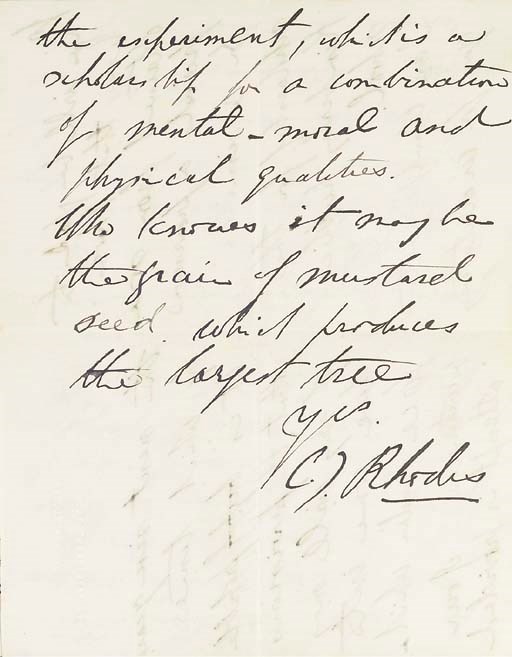 the experiment, which is a
scholarship for a combination
of mental - moral and
physical qualities.
Who knows it may be
the grain of mustard
seed which produces
the largest tree
Yrs.
C. J. Rhodes